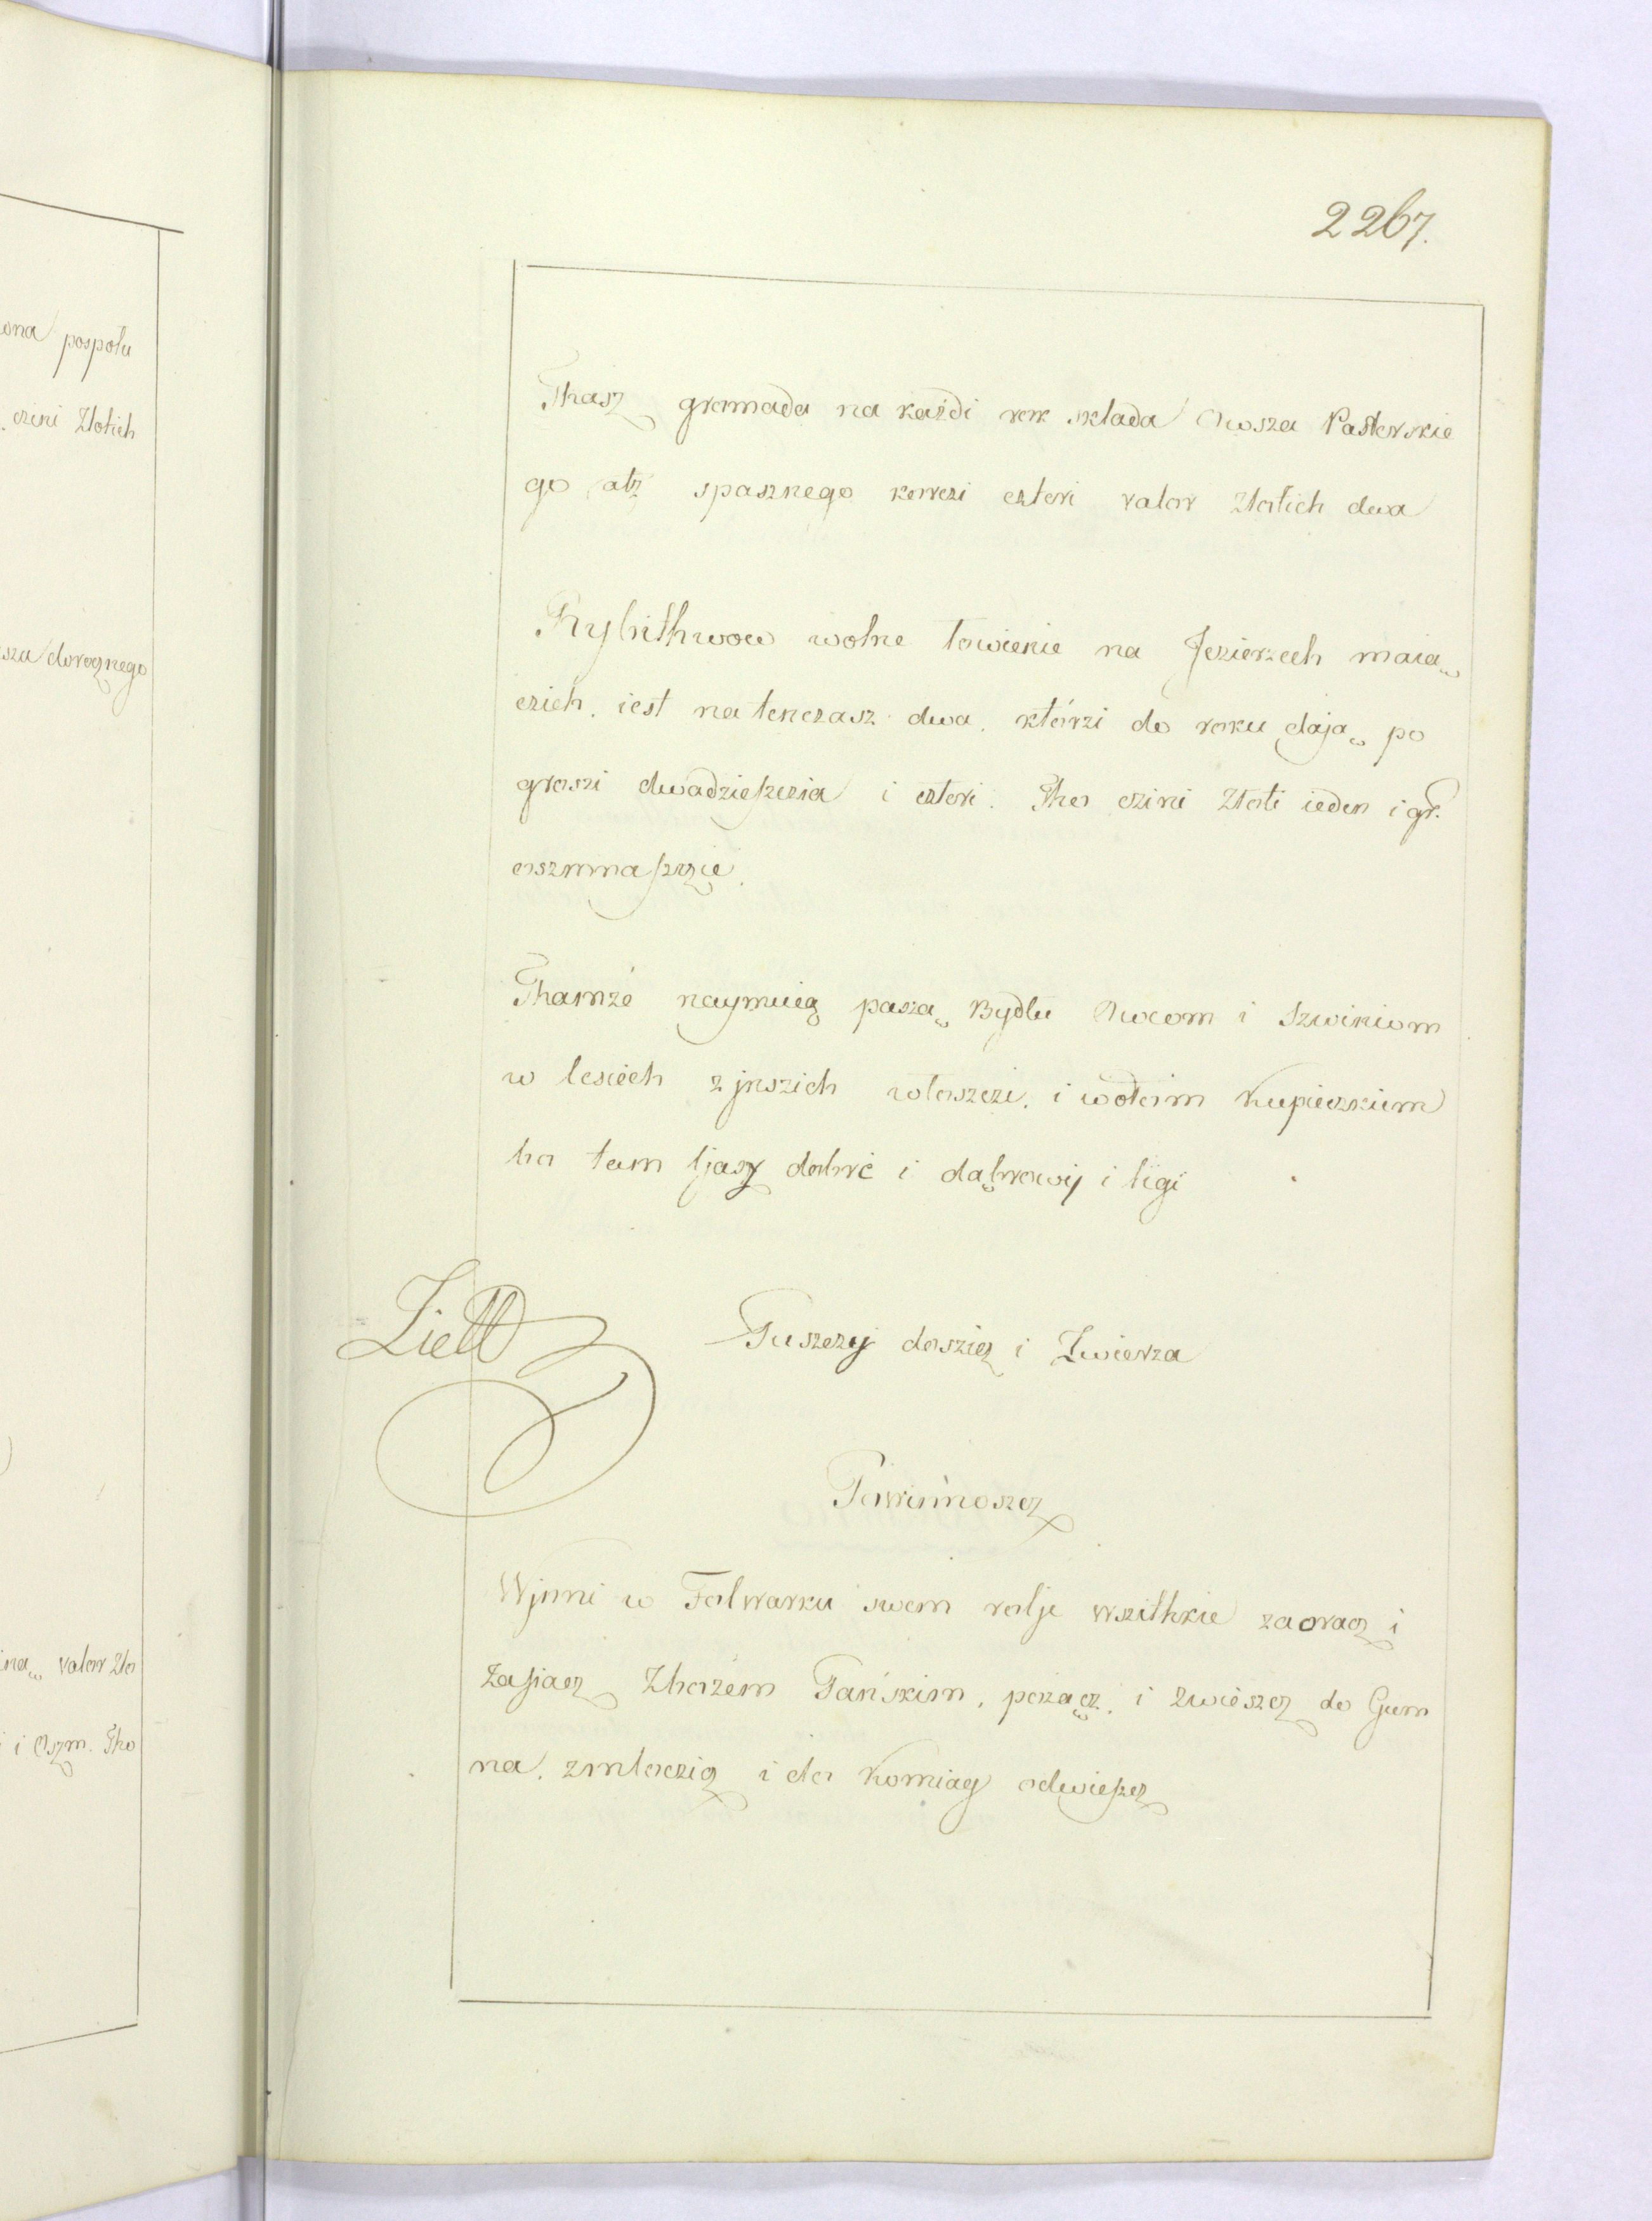 2267.
ona pospołu
czini Złotich
sza dorocznego
ną valor Zło
i Oszm. Tho
Thasz gromada na każdi rok składa Owsza Pasterskie
go alz spasznego korczi cztori valor Złotich dwa
Rybithwow wolne łowienie na Jezierzech maią
czich. iest na tenczasz dwa. którzi do roku dają po
groszi dwadzieszczia i cztori. Tho czini Złoti ieden i gr.
oszmnaszczie.
Thamże naymuią paszą Bydłu Owcom i Szwiniom
w lesiech z jnszich włoszczi. i wołom Kupieczkium
bo tam ljasz dobrć i dąbrowij i ligi
Liett
Puszczij doszicz i Zwierza
Powinnoszcz
Wjnni w Folwarku swem rolje wszithkie zaoracz i
Zasiacz Zbożem Pańskim, pożącz. i zwieszcz do Gum
na. zmłoczicz i do Komiag odwieszcz